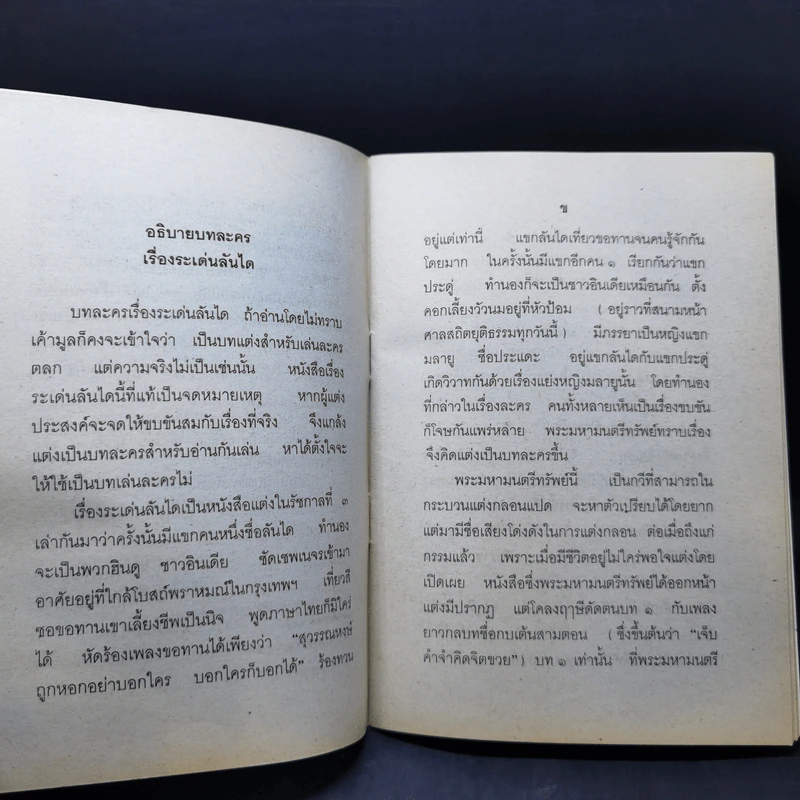 อธิบายบทละคร
เรื่องระเด่นลันได
บทละครเรื่องระเด่นลันได ถ้าอ่านโดยไม่ทราบ
เค้ามูลก็คงจะเข้าใจว่า เป็นบทแต่งสำหรับเล่นละคร
ตลก แต่ความจริงไม่เป็นเช่นนั้น หนังสือเรื่อง
ระเด่นลันไดนี้ที่แท้เป็นจดหมายเหตุ หากผู้แต่ง
ประสงค์จะจดให้ขบขันสมกับเรื่องที่จริง จึงแกล้ง
แต่งเป็นบทละครสำหรับอ่านกันเล่น หาได้ตั้งใจจะ
ให้ใช้เป็นบทเล่นละครไม่
เรื่องระเด่นลันไดเป็นหนังสือแต่งในรัชกาลที่ ๓
เล่ากันมาว่าครั้งนั้นมีแขกคนหนึ่งชื่อลันได ทำนอง
จะเป็นพวกฮินดู ชาวอินเดีย ซัดเซพเนจรเข้ามา
อาศัยอยู่ที่ใกล้โบสถ์พราหมณ์ในกรุงเทพฯ เที่ยวสี
ซอขอทานเขาเลี้ยงชีพเป็นนิจ พูดภาษาไทยก็มิใคร่
ได้ หัดร้องเพลงขอทานได้เพียงว่า “สุวรรณหงษ์
ถูกหอกอย่าบอกใคร บอกใครก็บอกได้” ร้องทวน
ข
อยู่แต่เท่านี้ แขกลันไดเที่ยวขอทานจนคนรู้จักกัน
โดยมาก ในครั้งนั้นมีแขกอีกคน ๑ เรียกกันว่าแขก
ประดู่ ทำนองก็จะเป็นชาวอินเดียเหมือนกัน ตั้ง
คอกเลี้ยงวัวนมอยู่ที่หัวป้อม (อยู่ราวที่สนามหน้า
ศาลสถิตยุติธรรมทุกวันนี้) มีภรรยาเป็นหญิงแขก
มลายู ชื่อประแดะ อยู่แขกลันไดกับแขกประดู่
เกิดวิวาทกันด้วยเรื่องแย่งหญิงมลายูนั้น โดยทำนอง
ที่กล่าวในเรื่องละคร คนทั้งหลายเห็นเป็นเรื่องขบขัน
ก็โจษกันแพร่หลาย พระมหามนตรีทรัพย์ทราบเรื่อง
จึงคิดแต่งเป็นบทละครขึ้น
พระมหามนตรีทรัพย์นี้ เป็นกวีที่สามารถใน
กระบวนแต่งกลอนแปด จะหาตัวเปรียบได้โดยยาก
แต่มามีชื่อเสียงโด่งดังในการแต่งกลอน ต่อเมื่อถึงแก่
กรรมแล้ว เพราะเมื่อมีชีวิตอยู่ไม่ใคร่พอใจแต่งโดย
เปิดเผย หนังสือซึ่งพระมหามนตรีทรัพย์ได้ออกหน้า
แต่งมีปรากฏ แต่โคลงฤๅษีดัดตนบท ๑ กับเพลง
ยาวกลบทชื่อกบเต้นสามตอน (ซึ่งขึ้นต้นว่า “เจ็บ
คำจำคิดจิตขวย”) บท ๑ เท่านั้น ที่พระมหามนตรี